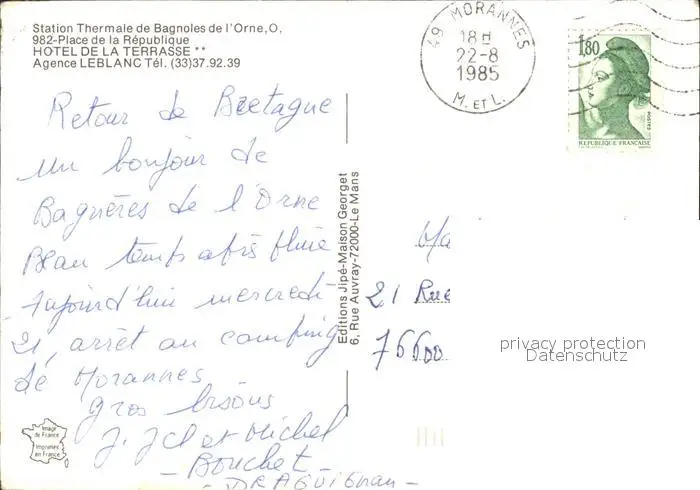 Station Thermale de Bagnoles de l'Orne,O,
982-Place de la République
HOTEL DE LA TERRASSE **
Agence LEBLANC Tél. (33)37.92.39
49 MORANNES
18 H
22-8
1985
M. ET L.
1,80
POSTES
REPUBLIQUE FRANÇAISE
Retour de Bretagne
un bonjour de
Bagnères de l'Orne
Beau temps après pluie
Aujourd'hui mercredi
21, arrêt au camping
de Morannes
gros bisous
J. Jcl et Michel
Bouchet
- DRAGUIGNAN -
Editions Jipé-Maison Georget
6, Rue Auvray-72000-Le Mans
Ma
21 Rue
76600
privacy protection
Datenschutz
Image
de France
Imprimée
en France